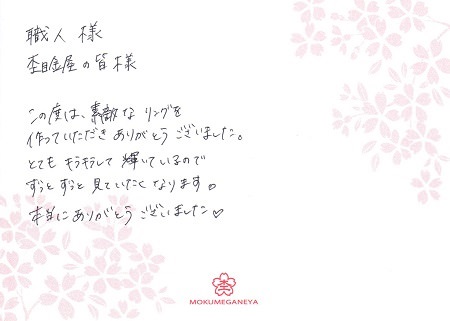 職人様
杢目金屋の皆様
この度は、素敵なリングを
作っていただきありがとうございました。
とてもキラキラして輝いているので
ずっとずっと見ていたくなります。
本当にありがとうございました♡
杢
MOKUMEGANEYA